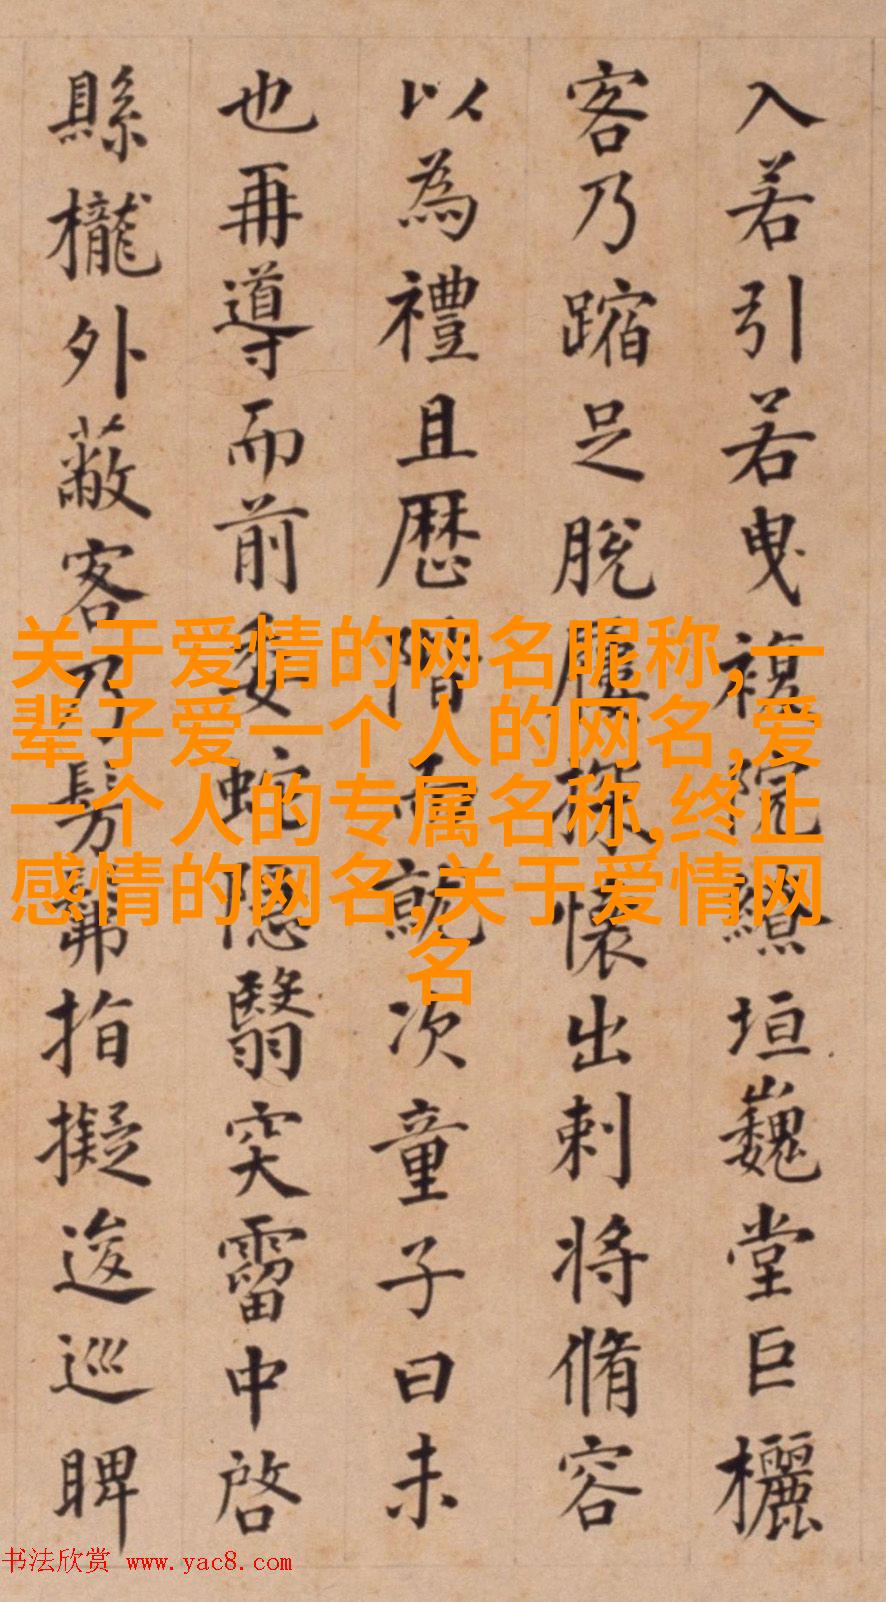 入若引若曳複院繚垣巍堂巨欐
客乃蹜足脫屨探懷出刺將脩容
以為禮且歷階而就次童子曰未
也再導而前委蛇隱翳突霤中啓
縣櫳外蔽客乃髣髴指擬逡巡睥
关于爱情的网名昵称,一
辈子爱一个人的网名,爱
一个人的专属名称,终止
感情的网名,关于爱情网
名
书法欣赏 www.yac8.com